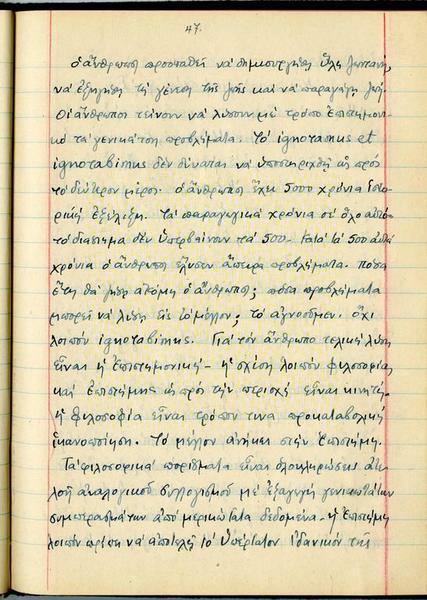 47.
ὁ ἄνθρωπος προσπαθεῖ νὰ δημιουργήσῃ ὕλη ζωντανή,
νὰ ἐξηγήσῃ τὴ γένεση τῆς ζωῆς καὶ νὰ παραγάγῃ ζωή.
Οἱ ἄνθρωποι τείνουν νὰ λύσουν μὲ τρόπο ἐπιστημονι-
κὸ τὰ γενικώτερα προβλήματα. Τὸ ignoramus et
ignorabimus δὲν δύναται νὰ ὑποστηριχθῇ ὡς πρὸς
τὸ δεύτερον μέρος. ὁ ἄνθρωπος ἔχει 5000 χρόνια ἱστο-
ρικὴ ἐξέλιξη. Τὰ παραγωγικὰ χρόνια σὲ ὅλο αὐτὸ
τὸ διάστημα δὲν ὑπερβαίνουν τὰ 500. Κατὰ τὰ 500 αὐτὰ
χρόνια ὁ ἄνθρωπος ἔλυσεν ἄπειρα προβλήματα. Πόσα
ἔτη θὰ ζήσῃ ἀκόμη ὁ ἄνθρωπος; πόσα προβλήματα
μπορεῖ νὰ λύσῃ εἰς τὸ μέλλον; τὸ ἀγνοοῦμεν. ὄχι
λοιπὸν ignorabimus. Γιὰ τὸν ἄνθρωπο τελικὴ λύση
εἶναι ἡ ἐπιστημονική - ἡ σχέση λοιπὸν φιλοσοφίας
καὶ ἐπιστήμης ὡς πρὸς τὴν περιοχὴ εἶναι κινητή.
ἡ φιλοσοφία εἶναι τρόπον τινα προκαταβολικὴ
ἱκανοποίηση. Τὸ μέλλον ἀνήκει στὴν ἐπιστήμη.
Τὰ φιλοσοφικὰ πορίσματα εἶναι ὁλοκληρώσεις ἀτε-
λοῦς ἀναλογικοῦ συλλογισμοῦ μὲ ἐξαγωγὴ γενικωτάτων
συμπερασμάτων ἀπὸ μερικώτατα δεδομένα - ἡ ἐπιστήμη
λοιπὸν πρέπει νὰ ἀποτελῇ τὸ ὑπέρτατον ἰδανικὸν τῆς